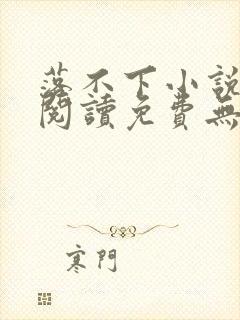 落不下小說
閱讀免費無
寒門